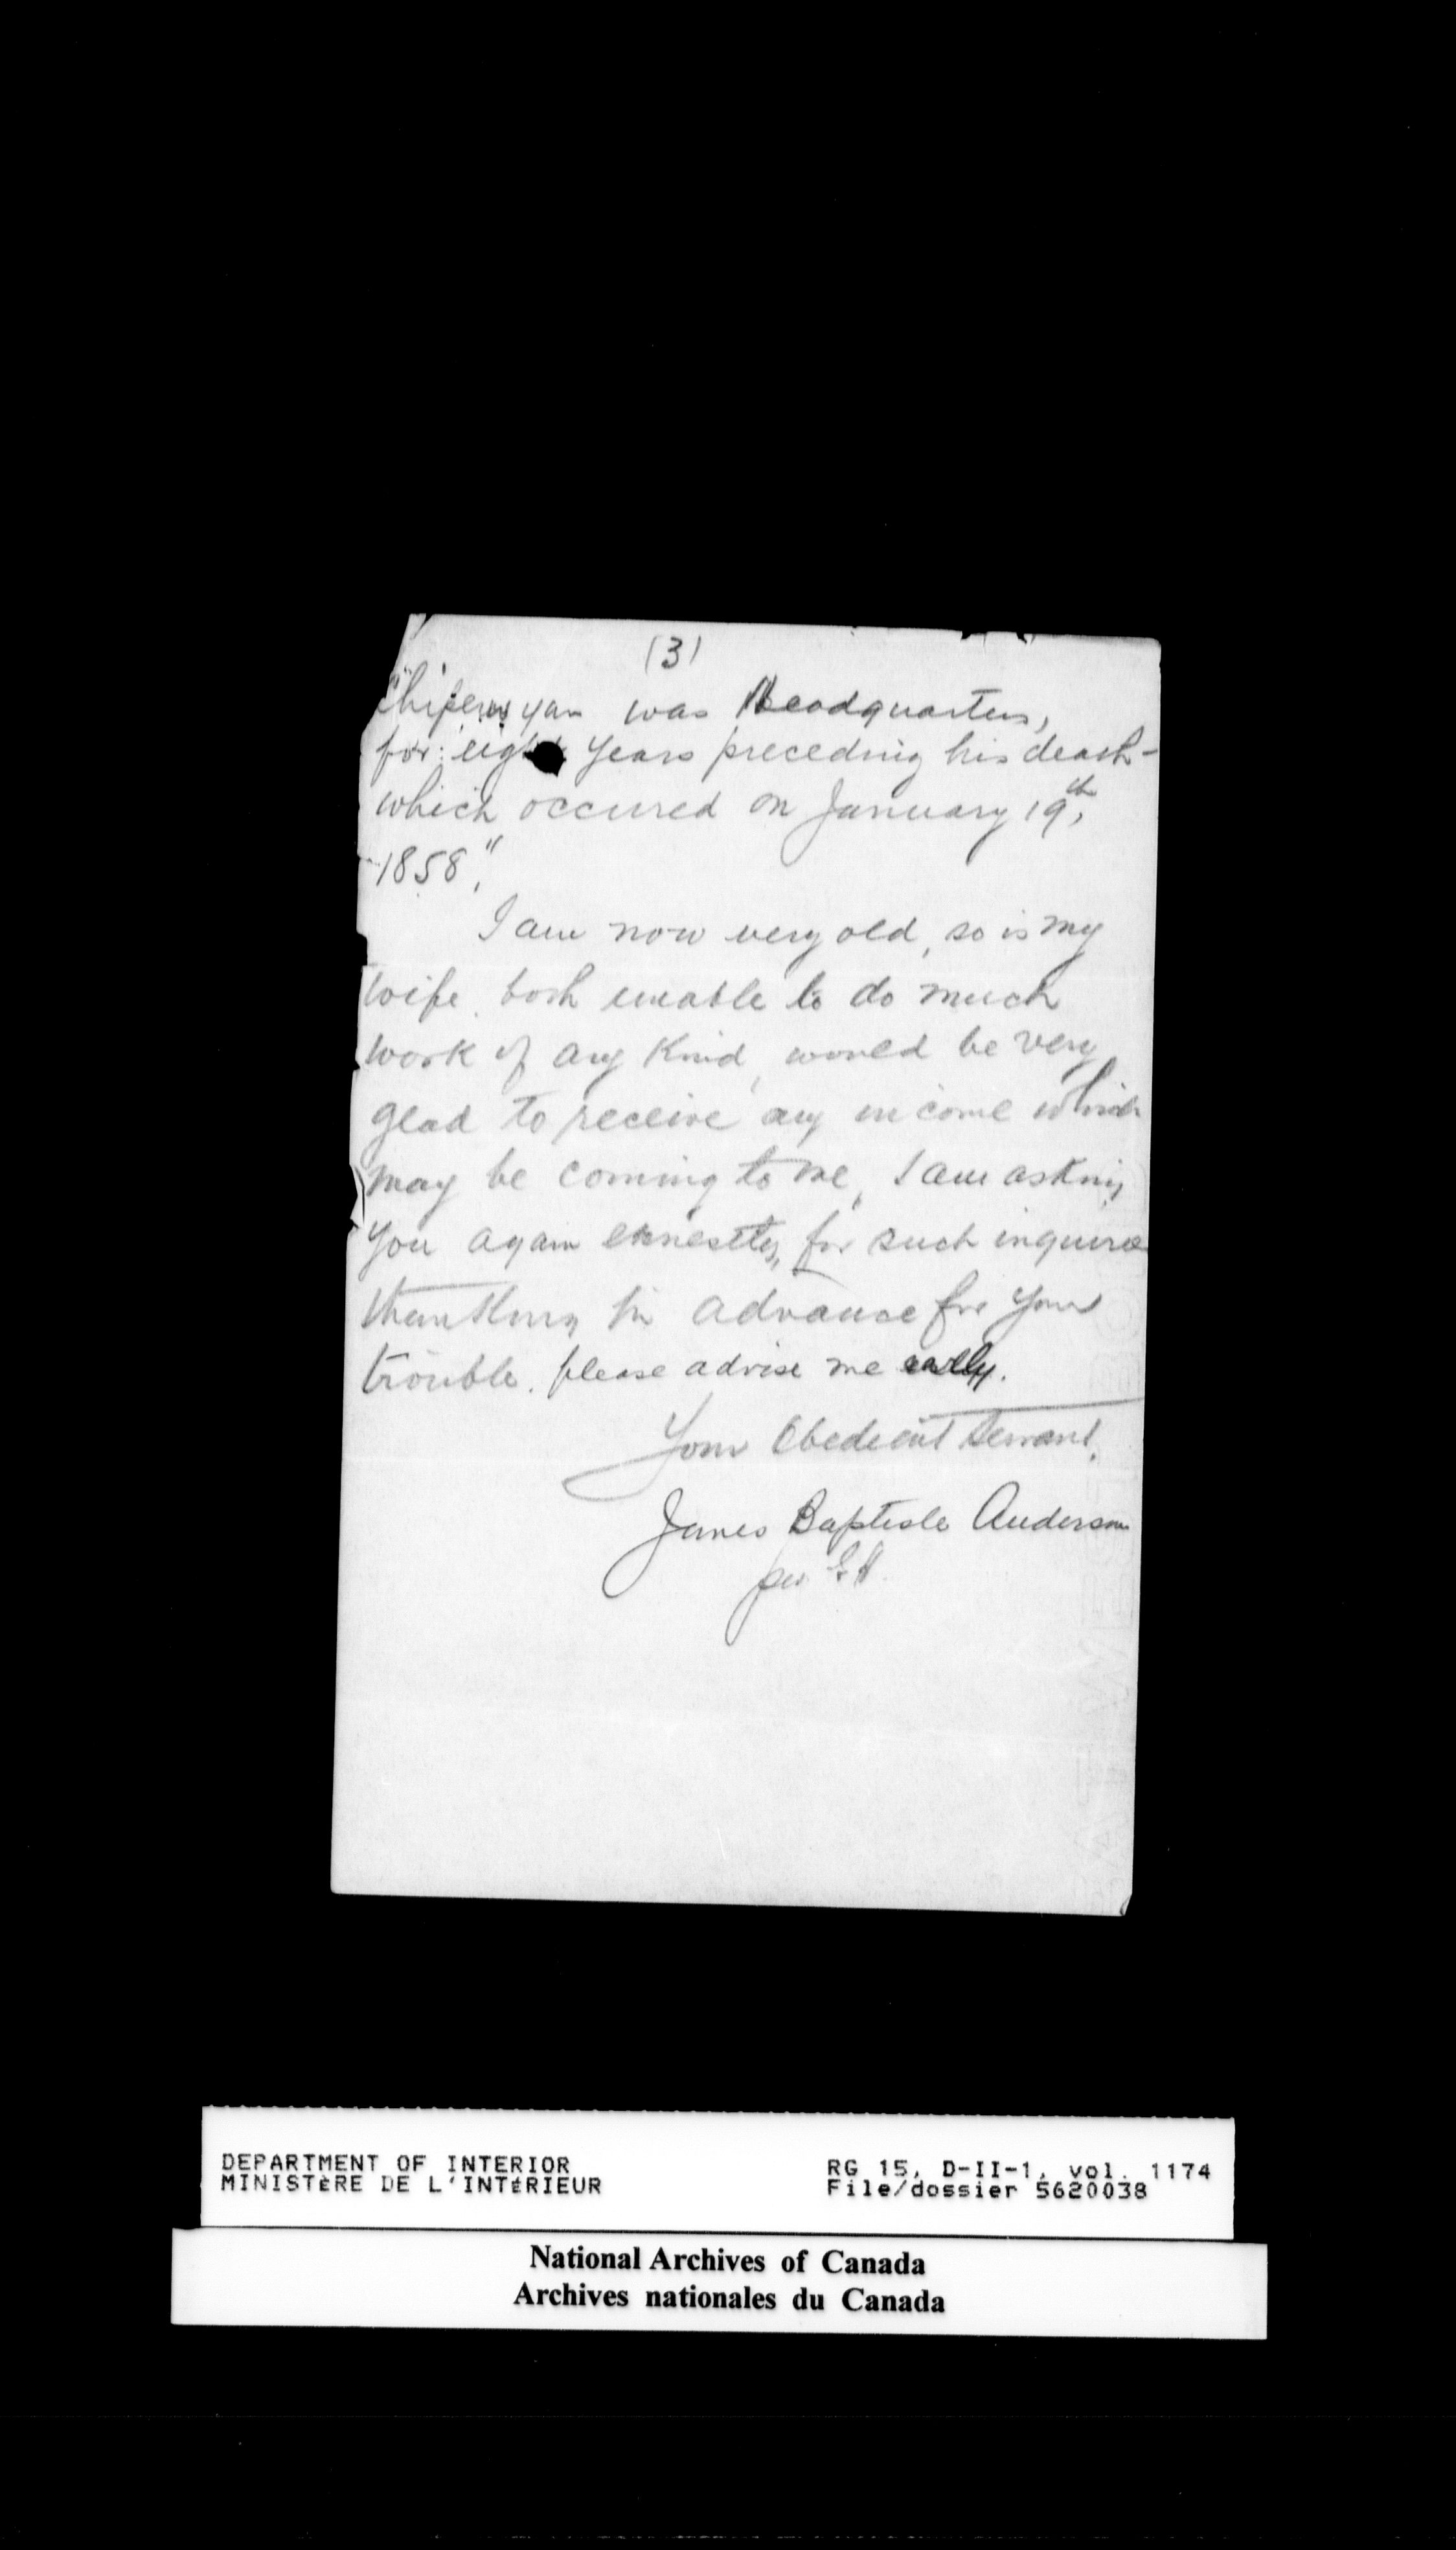 (3)
Chipewyan was Headquarters,
for eight years preceding his death-
which occured on January 19th,
1858".
I am now very old, so is my
wife, both unable to do much
work of any Kind, would be very
glad to receive any income which
may be coming to me, I am asking
you again ernestly, for such inquire
thanking in advance for your
trouble. please advise me early.
Your Obedient Servant,
James Baptiste Anderson
per
DEPARTMENT OF INTERIOR
MINISTÈRE DE L'INTÉRIEUR
RG 15, D-II-1, vol. 1174
File/dossier 5620038
National Archives of Canada
Archives nationales du Canada